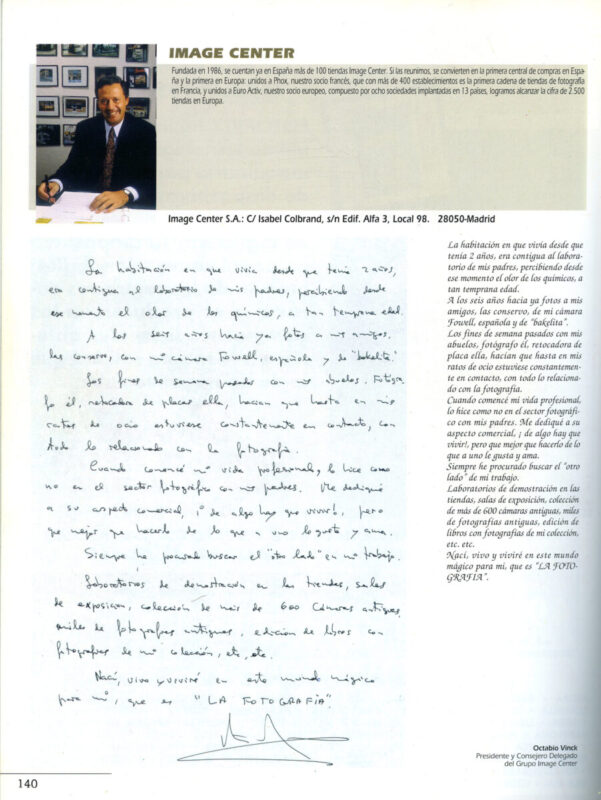 IMAGE CENTER
Fundada en 1986, se cuentan ya en España más de 100 tiendas Image Center. Si las reunimos, se convierten en la primera central de compras en Espa-
ña y la primera en Europa: unidos a Phox, nuestro socio francés, que con más de 400 establecimientos es la primera cadena de tiendas de fotografía
en Francia, y unidos a Euro Activ, nuestro socio europeo, compuesto por ocho sociedades implantadas en 13 países, logramos alcanzar la cifra de 2.500
tiendas en Europa.
Image Center S.A.: C/ Isabel Colbrand, s/n Edif. Alfa 3, Local 98. 28050-Madrid
La habitación en que vivía desde que tenía 2 años,
era contigua al laboratorio de mis padres, percibiendo desde
ese momento el olor de los químicos, a tan temprana edad.
A los seis años hacía ya fotos a mis amigos,
las conservo, con mi cámara Fowell, española y de "bakelita".
Los fines de semana pasados con mis abuelos. Fotógra
fo él, retocadora de placas ella, hacían que hasta en mis
ratos de ocio estuviese constantemente en contacto, con
todo lo relacionado con la fotografía.
Cuando comencé mi vida profesional, lo hice como
no en el sector fotográfico con mis padres. Me dediqué
a su aspecto comercial, ¡ de algo hay que vivir!, pero
que mejor que hacerlo de lo que a uno le gusta y ama.
Siempre he procurado buscar el "otro lado" en mi trabajo.
Laboratorios de demostración en las tiendas, salas
de exposición, colección de más de 600 cámaras antiguas,
miles de fotografías antiguas, edición de libros con
fotografías de mi colección, etc, etc.
Nací, vivo y viviré en este mundo mágico
para mí, que es "LA FOTOGRAFIA".
La habitación en que vivía desde que
tenía 2 años, era contigua al labora-
torio de mis padres, percibiendo desde
ese momento el olor de los químicos, a
tan temprana edad.
A los seis años hacía ya fotos a mis
amigos, las conservo, de mi cámara
Fowell, española y de "bakelita".
Los fines de semana pasados con mis
abuelos, fotógrafo él, retocadora de
placa ella, hacían que hasta en mis
ratos de ocio estuviese constantemen-
te en contacto, con todo lo relaciona-
do con la fotografía.
Cuando comencé mi vida profesional,
lo hice como no en el sector fotográfi-
co con mis padres. Me dediqué a su
aspecto comercial, ¡ de algo hay que
vivir!, pero que mejor que hacerlo de lo
que a uno le gusta y ama.
Siempre he procurado buscar el "otro
lado" de mi trabajo.
Laboratorios de demostración en las
tiendas, salas de exposición, colección
de más de 600 cámaras antiguas, miles
de fotografías antiguas, edición de
libros con fotografías de mi colección,
etc. etc.
Nací, vivo y viviré en este mundo
mágico para mi, que es "LA FOTO-
GRAFIA".
Octabio Vinck
Presidente y Consejero Delegado
del Grupo Image Center
140